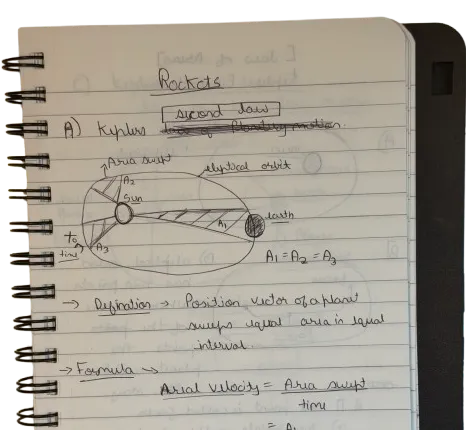 Rockets
second law
A) Kyplers
Aria swept
eliptical orbit
A2
Sun
A1
earth
to
time
A3
A1 = A2 = A3
→ Defination → Position vector of a planet
sweeps equal area in equal
interval.
→ Formula
Arial velocity = Area swept
time
= A1